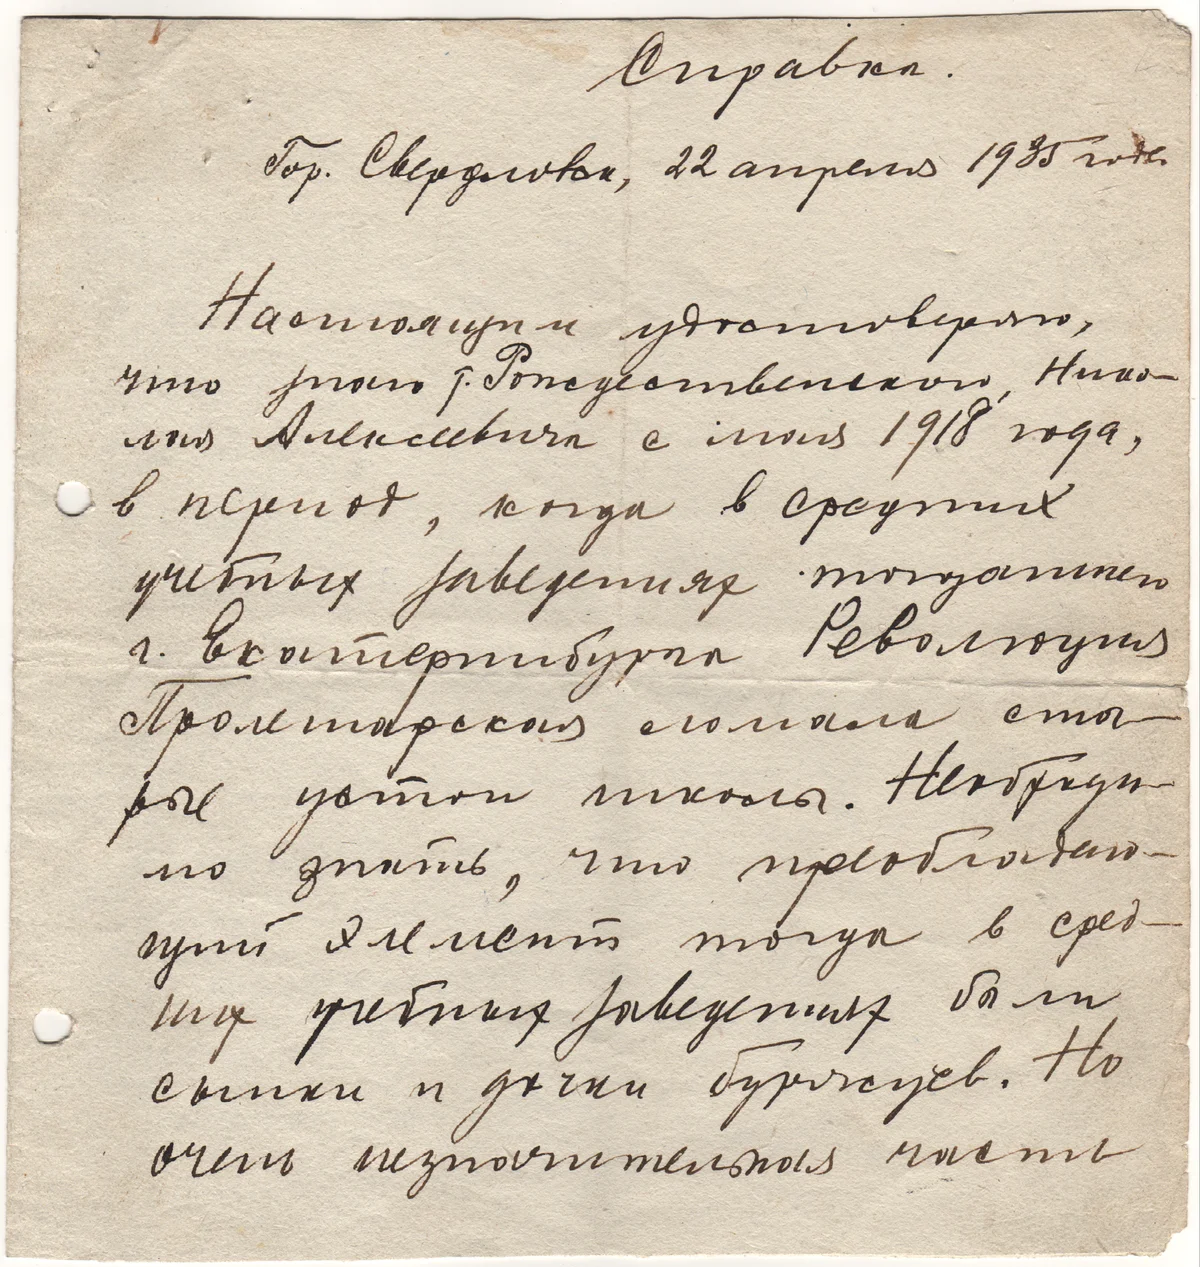 Справка.
Гор. Свердловск, 22 апреля 1935 года
Настоящим удостоверяю,
что знаю т. Рождественского, Нико-
лая Алексеевича с мая 1918 года,
в период, когда в средних
учебных заведениях тогдашнего
г. Екатеринбурга Революция
Пролетарская сломала ста-
рые устои школы. Необходи-
мо знать, что преобладаю-
щий элемент тогда в сред-
них учебных заведениях были
сынки и дочки буржуев. Но
очень незначительная часть